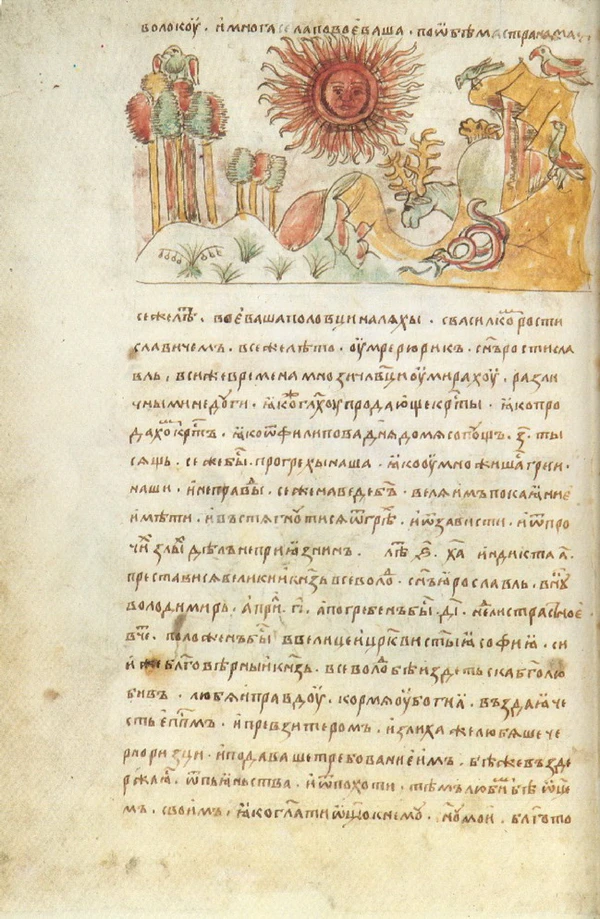 волокоу · и многа села повоеваша · по ѿбѣма странама
се же лѣт҃ · воеваша половци на ляхы · с василкоⷨ рости
славичемъ · в се же лѣто · оумре рюрикъ · сн҃ъ ростисла
вль · в си же времена мнози члв҃ци оумирахоу · разли
чными недоуги · ꙗкоⷤ гл҃хоу продающе крⷭты · ꙗко про
дахоⷨ крⷭтъ · ꙗко ѿ филипова дн҃я до мясопощъ · з҃ · ты
сящь · се же бы · по грехы наша · ꙗко оумножишаⷭ греси ·
наши · и неправⷣы · се же наведе бг҃ъ · веля имъ покаꙗние
имѣти · и въстягнутися ѿ грѣⷯ · и ѿ зависти · и ѿ про
чиⷯ злыⷯ дѣлъ неприꙗзнинъ · лѣт҃ · индикта а҃ ·
преставися великии кн҃зь всеволоⷣ · сн҃ъ ꙗрославль · внꙋкъ
володимирь · априⷧ · гі҃ · а погребенъ быⷭ · ді҃ · неⷣли страстное
в че · положенъ быⷭ в велицеи црк҃ви ст҃ыꙗ софиꙗ · си
и же блг҃оверныи кн҃зь · всеволоⷣ бѣ издетьска бг҃олю
бивъ · любя правдоу · кормя оубогиꙗ · въздаꙗ че
сть еп҃пмъ · и превзитеромъ · излиха же любяше че
рноризци · и подаваше требование имъ · бѣ же въздe
ржаꙗ ѿ пьꙗньства · и ѿ похоти · тѣмъ любим бѣ ѿц҃е
мъ своимъ · ꙗко гл҃ати ѿц҃ю к нему · сн҃у мои · бл҃го то